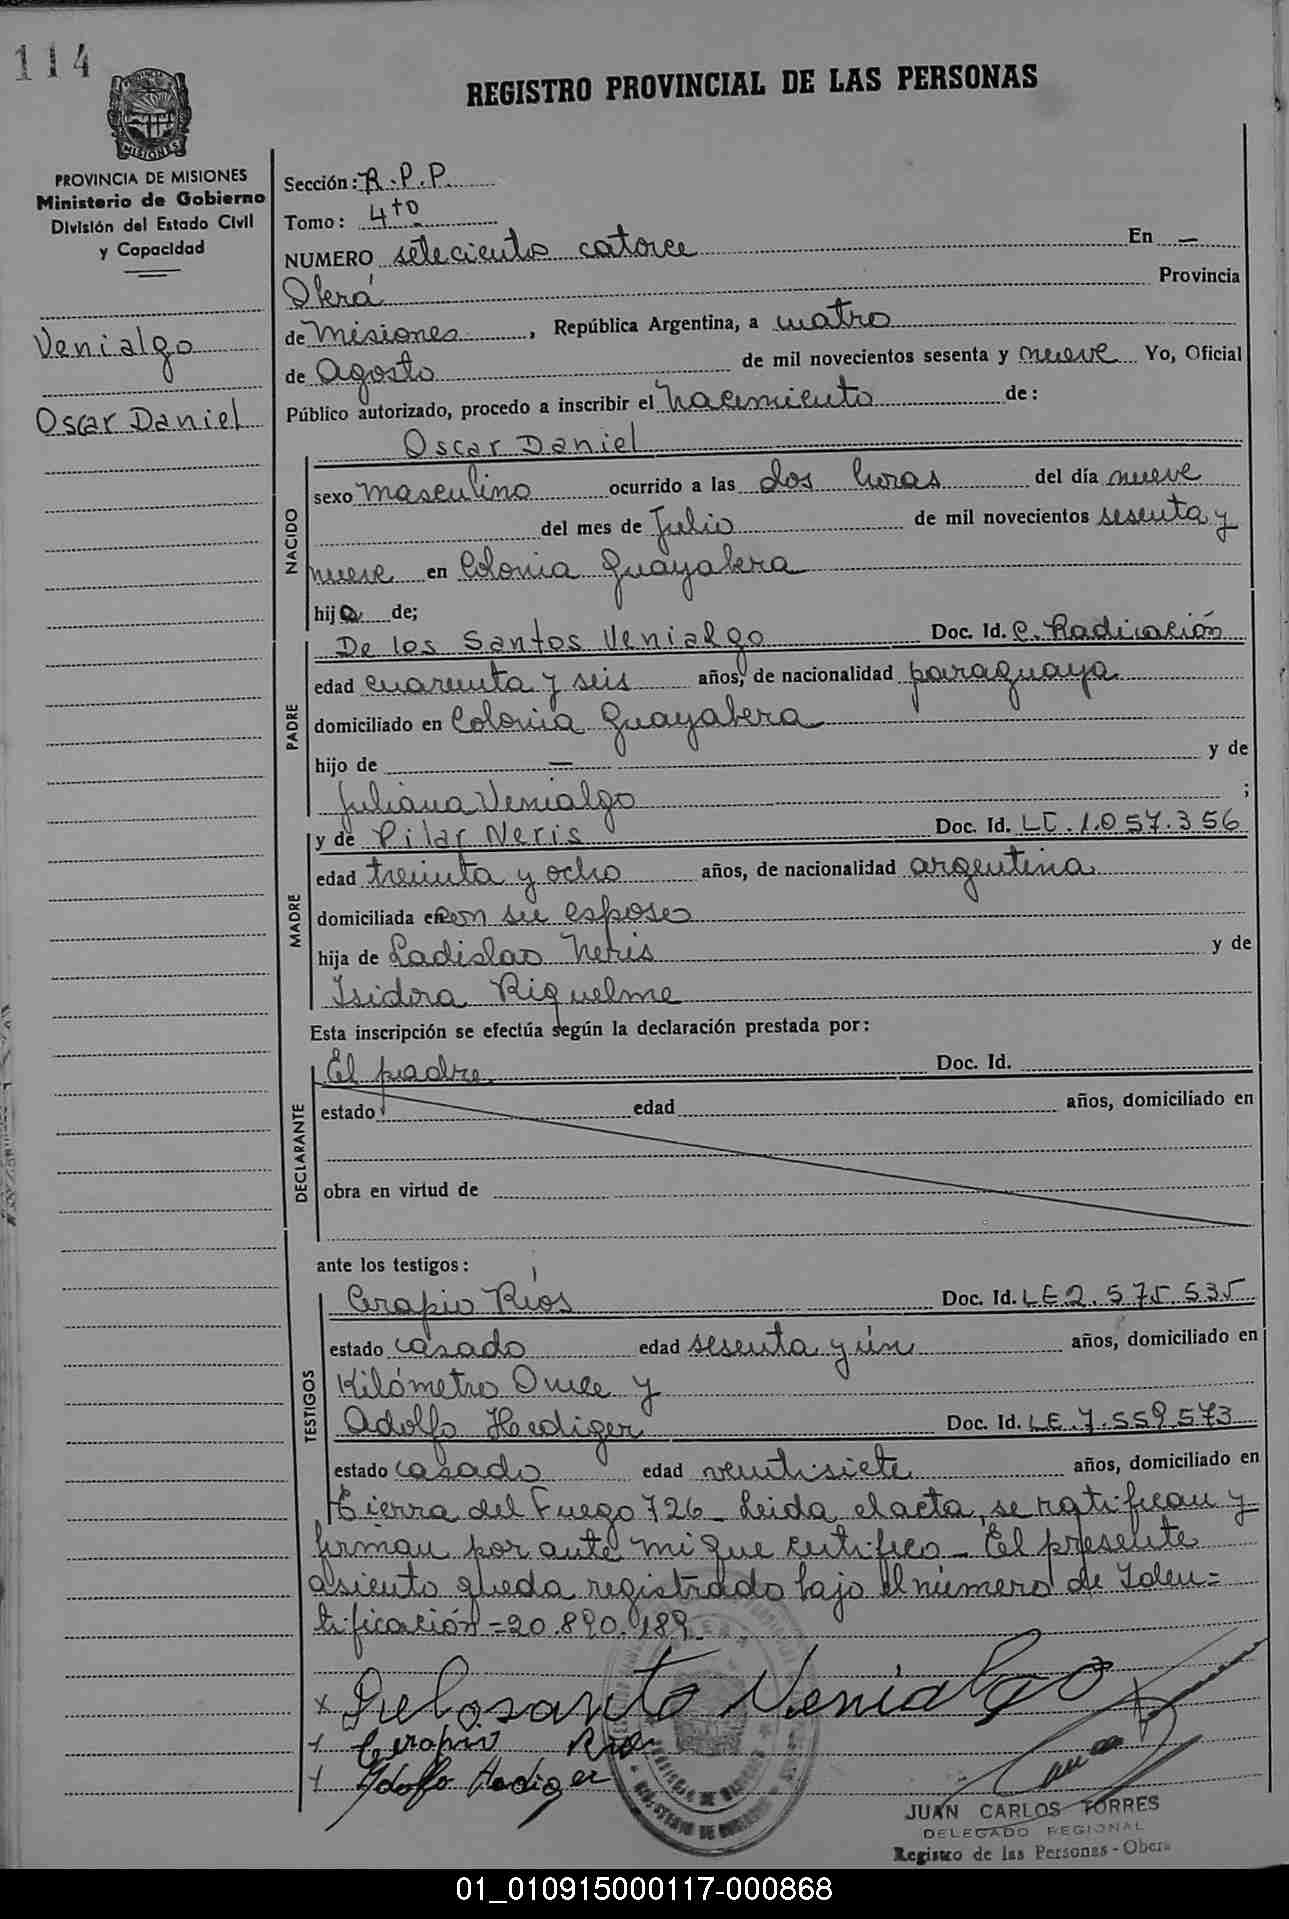 114
REGISTRO PROVINCIAL DE LAS PERSONAS
MISIONES
PROVINCIA DE MISIONES
Ministerio de Gobierno
División del Estado Civil
y Capacidad
Venialgo
Oscar Daniel
Sección: R.P.P.
Tomo: 4to
NUMERO setecientos catorce En —
Oberá Provincia
de Misiones, República Argentina, a cuatro
de Agosto de mil novecientos sesenta y nueve Yo, Oficial
Público autorizado, procedo a inscribir el nacimiento de:
Oscar Daniel
NACIDO
sexo masculino ocurrido a las dos horas del día nueve
del mes de Julio de mil novecientos sesenta y
nueve en Colonia Guayabera
hijo de;
PADRE
De los Santos Venialgo Doc. Id. C. Radicación
edad cuarenta y seis años, de nacionalidad paraguaya
domiciliado en Colonia Guayabera
hijo de — y de
Juliana Venialgo ;
MADRE
y de Pilar Neris Doc. Id. LC.1.057.356
edad treinta y ocho años, de nacionalidad argentina
domiciliada en con su esposo
hija de Ladislao Neris y de
Isidora Riquelme
Esta inscripción se efectúa según la declaración prestada por:
DECLARANTE
El padre Doc. Id.
estado edad años, domiciliado en
obra en virtud de
ante los testigos:
TESTIGOS
Cerapio Ríos Doc. Id. LE2.575.535
estado casado edad sesenta y ún años, domiciliado en
Kilómetro Once y
Adolfo Hediger Doc. Id. LE.7.559.573
estado casado edad veintisiete años, domiciliado en
Tierra del Fuego 726_ Leida el acta, se ratifican y
firman por ante mi que certifico_ El presente
asiento queda registrado bajo el número de Iden=
tificación=20.890.189_
x Delosanto Venialgo
x Cerapio Rios
x Adolfo Hediger
JUAN CARLOS TORRES
DELEGADO REGIONAL
Registro de las Personas - Oberá
01_010915000117-000868